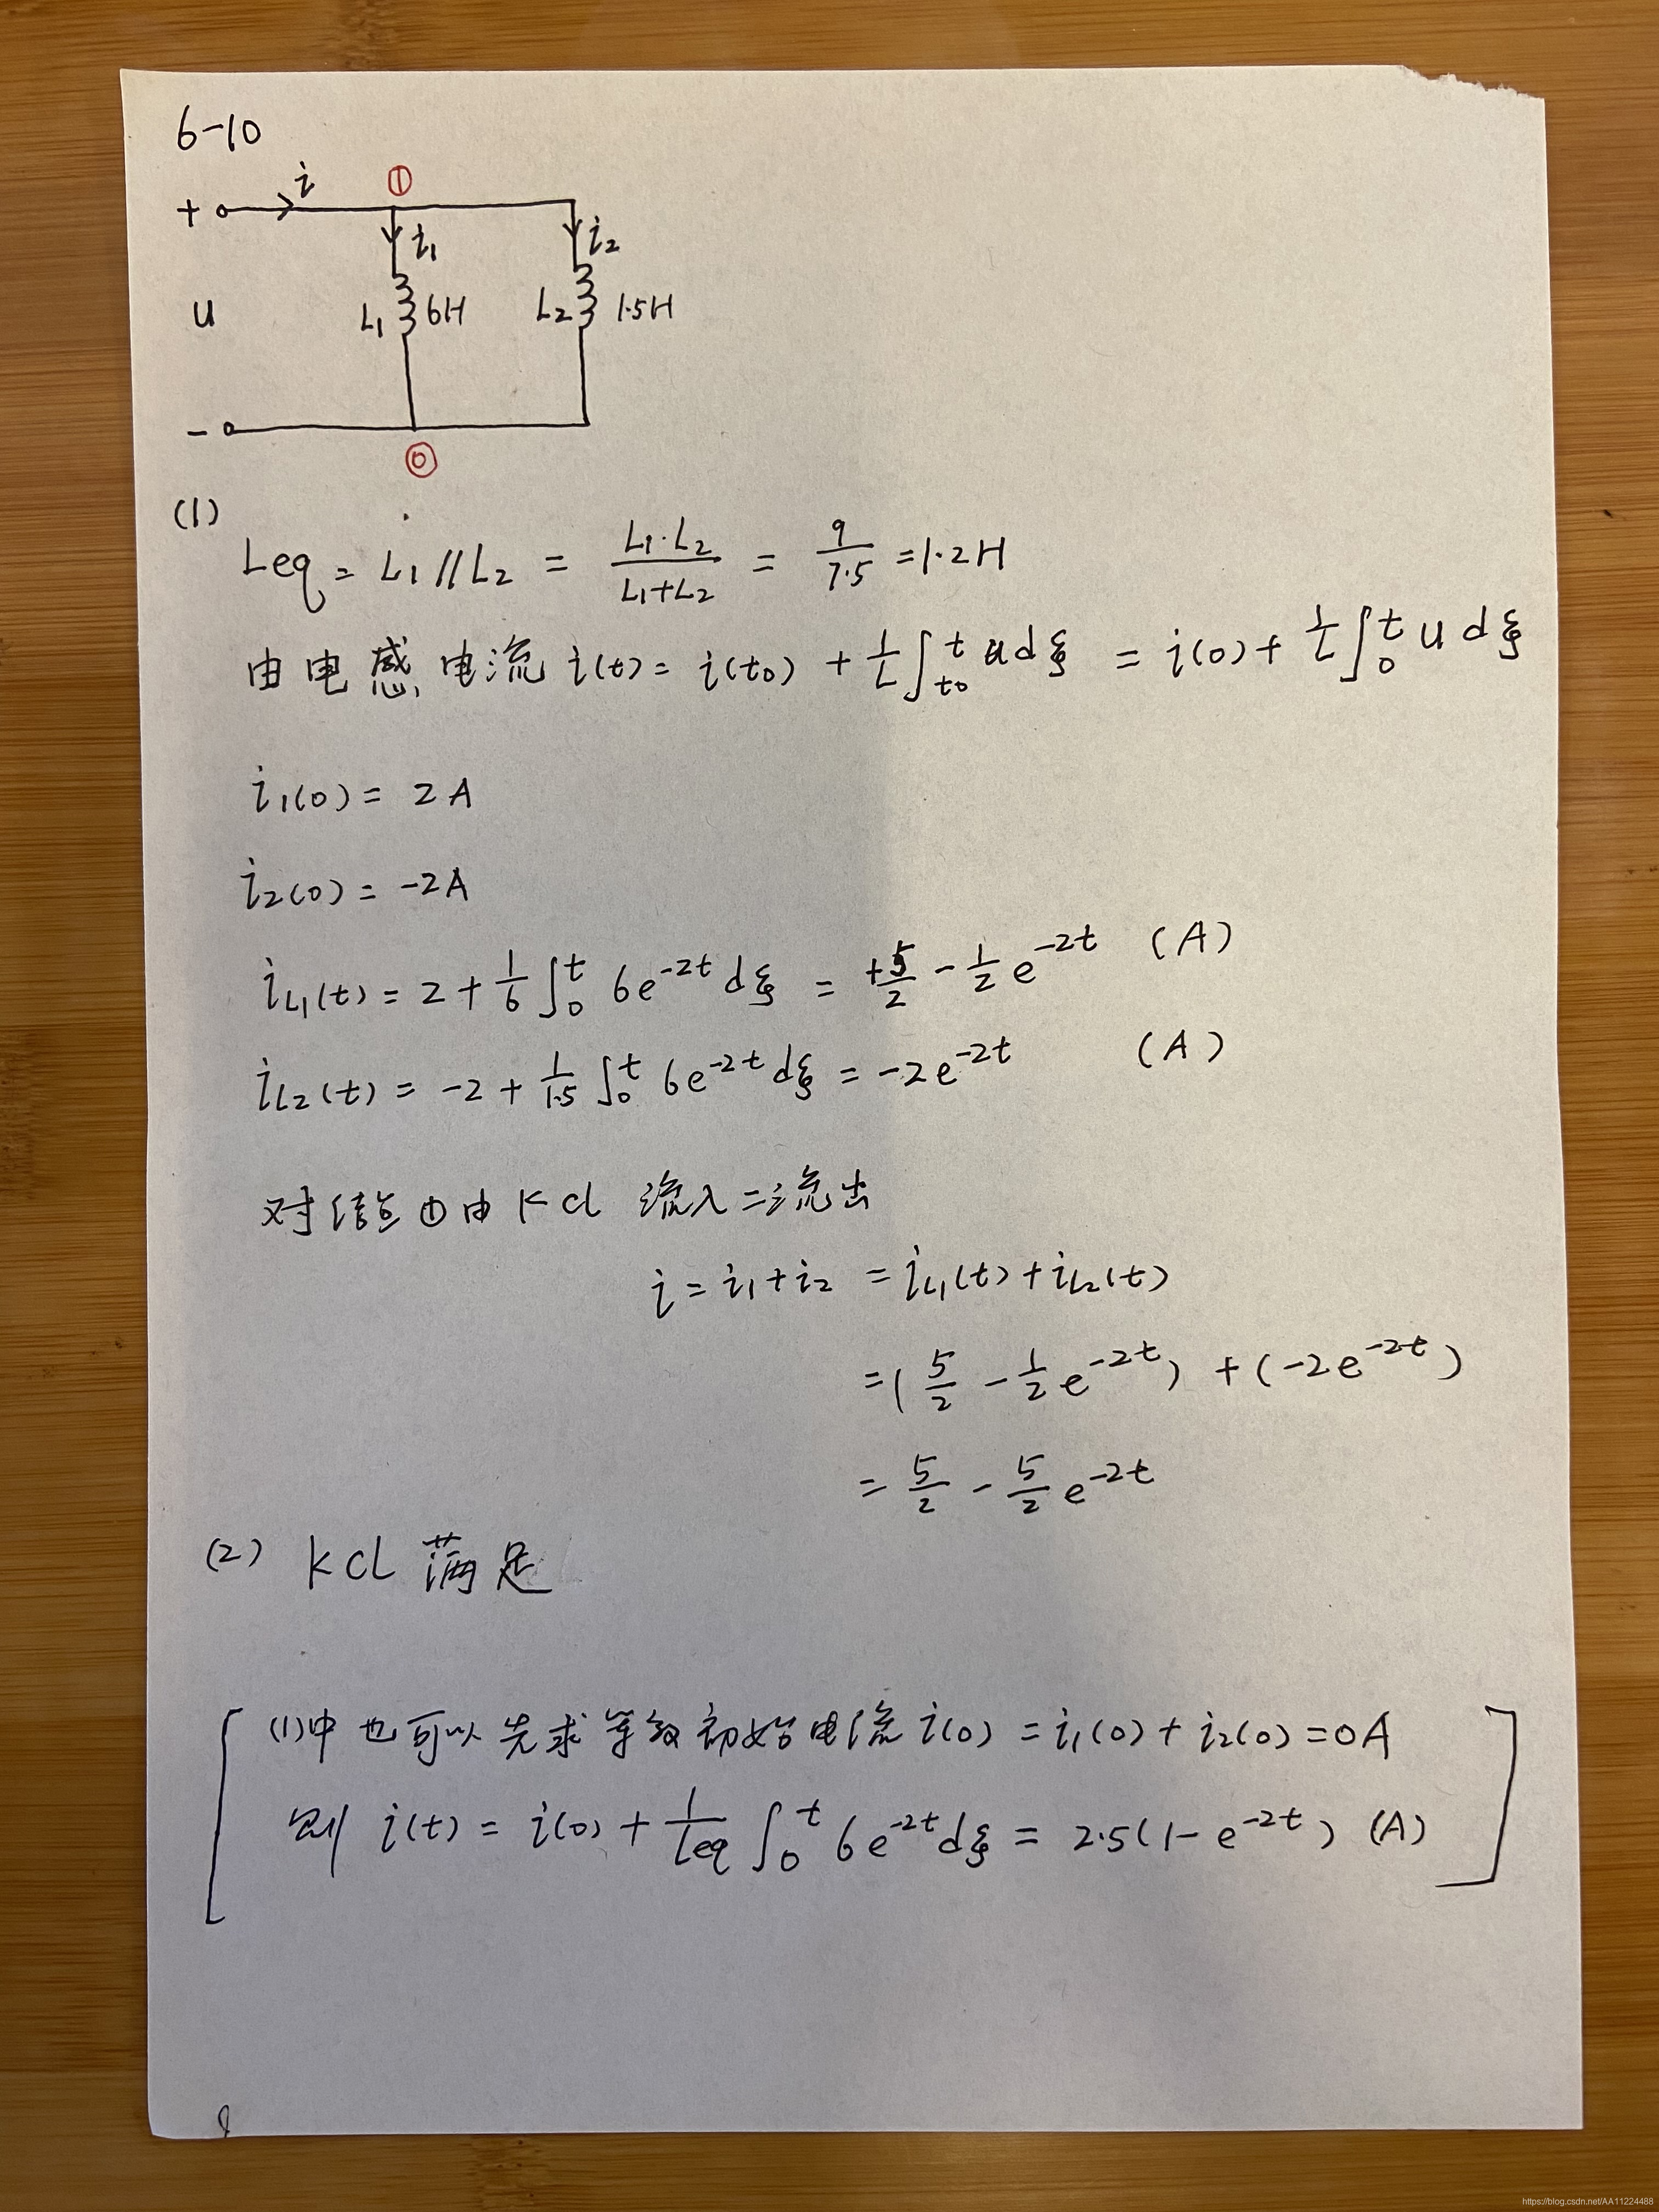 6-10
i ①
+
i₁ i₂
u L₁ 6H L₂ 1.5H
-
⓪
(1)
Leq = L₁//L₂ = \frac{L₁·L₂}{L₁+L₂} = \frac{9}{7.5} = 1.2H
由电感电流 i(t) = i(t₀) + \frac{1}{L}∫_{t₀}^{t} u dξ = i(0) + \frac{1}{L}∫_{0}^{t} u dξ
i₁(0) = 2A
i₂(0) = -2A
i_{L1}(t) = 2 + \frac{1}{6}∫_{0}^{t} 6e^{-2t} dξ = +\frac{5}{2} - \frac{1}{2}e^{-2t} (A)
i_{L2}(t) = -2 + \frac{1}{1.5}∫_{0}^{t} 6e^{-2t} dξ = -2e^{-2t} (A)
对结点①由KCL 流入=流出
i = i₁+i₂ = i_{L1}(t) + i_{L2}(t)
= (\frac{5}{2} - \frac{1}{2}e^{-2t}) + (-2e^{-2t})
= \frac{5}{2} - \frac{5}{2}e^{-2t}
(2) KCL 满足
(1)中也可以先求等效初始电流 i(0) = i₁(0) + i₂(0) = 0A
则 i(t) = i(0) + \frac{1}{Leq}∫_{0}^{t} 6e^{-2t} dξ = 2.5(1-e^{-2t}) (A)
https://blog.csdn.net/AA11224488